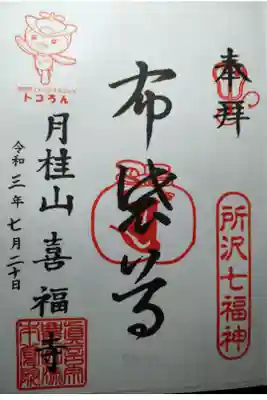 奉拝
所沢七福神
布袋尊
トコろん
月桂山 喜福寺
令和三年七月二十日